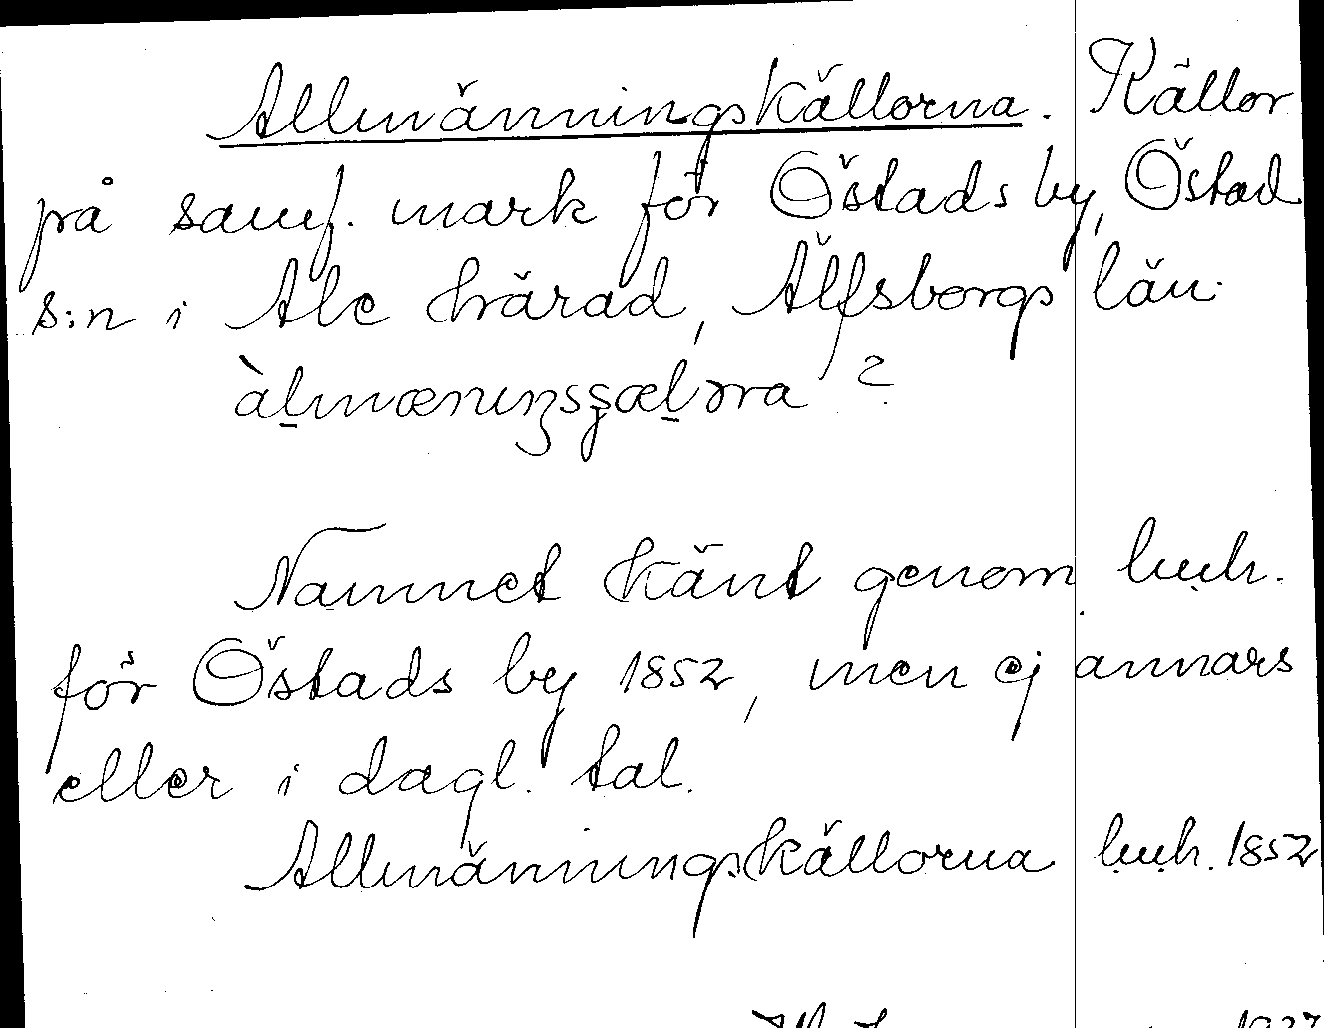 Allmänningskällorna. Källor
på samf. mark för Östads by, Östad
s:n i Ale härad, Älfsborgs län.
àlmænıŋsçælɔrna ?
Namnet känt genom l.u.h.
för Östads by 1852, men ej annars
eller i dagl. tal.
Allmänningskällorna l.u.h. 1852